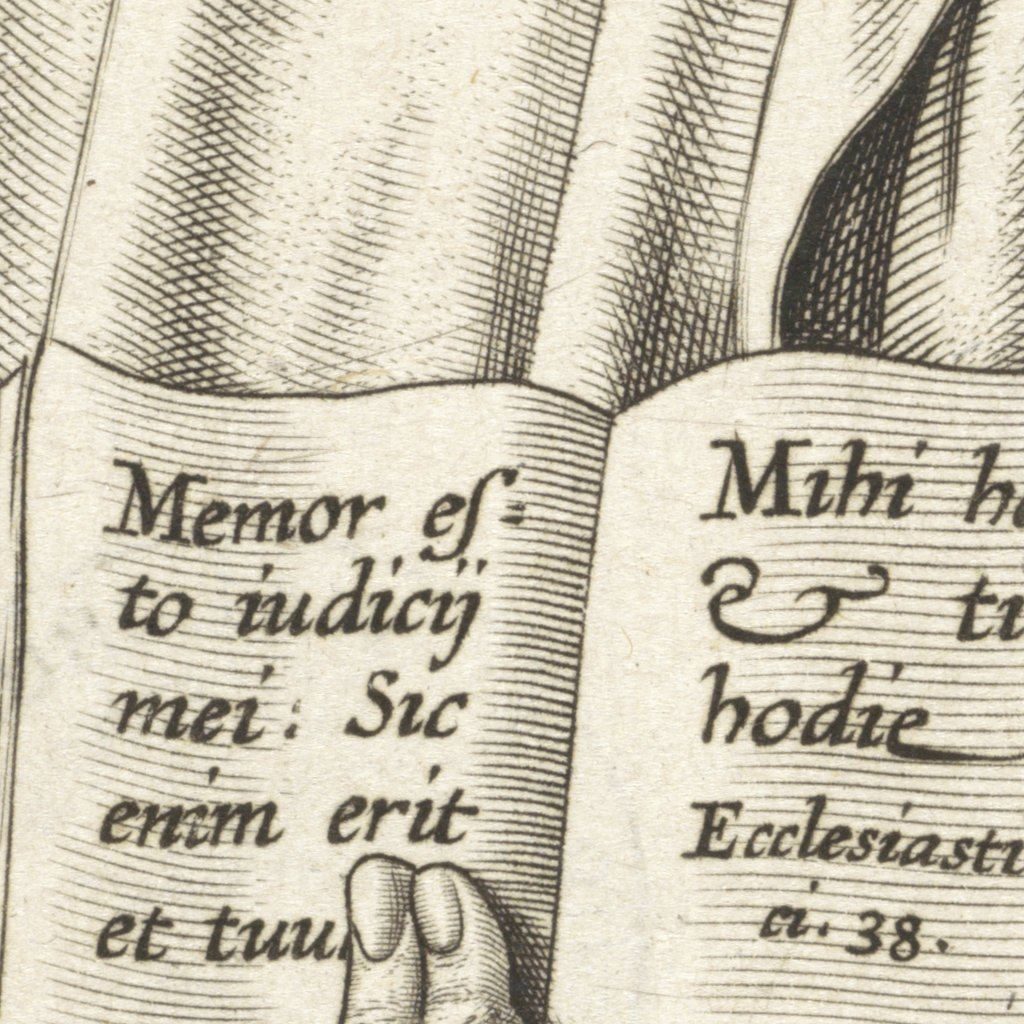 Memor eſ-
to iudicij
mei: Sic
enim erit
et tuu
Mihi he
& ti
hodie
Ecclesiasti
ci. 38.